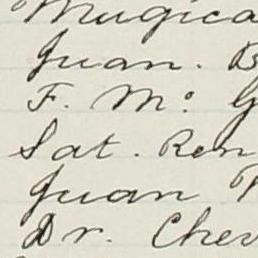 Mugica
Juan. B
F. Mc G
Sat. Ren
Juan
Dr. Chev